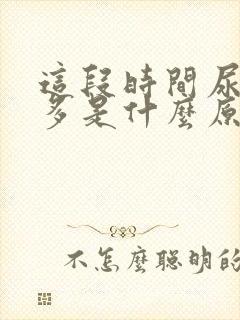 這段時間尿
多是什麼原
不怎麼聰明的